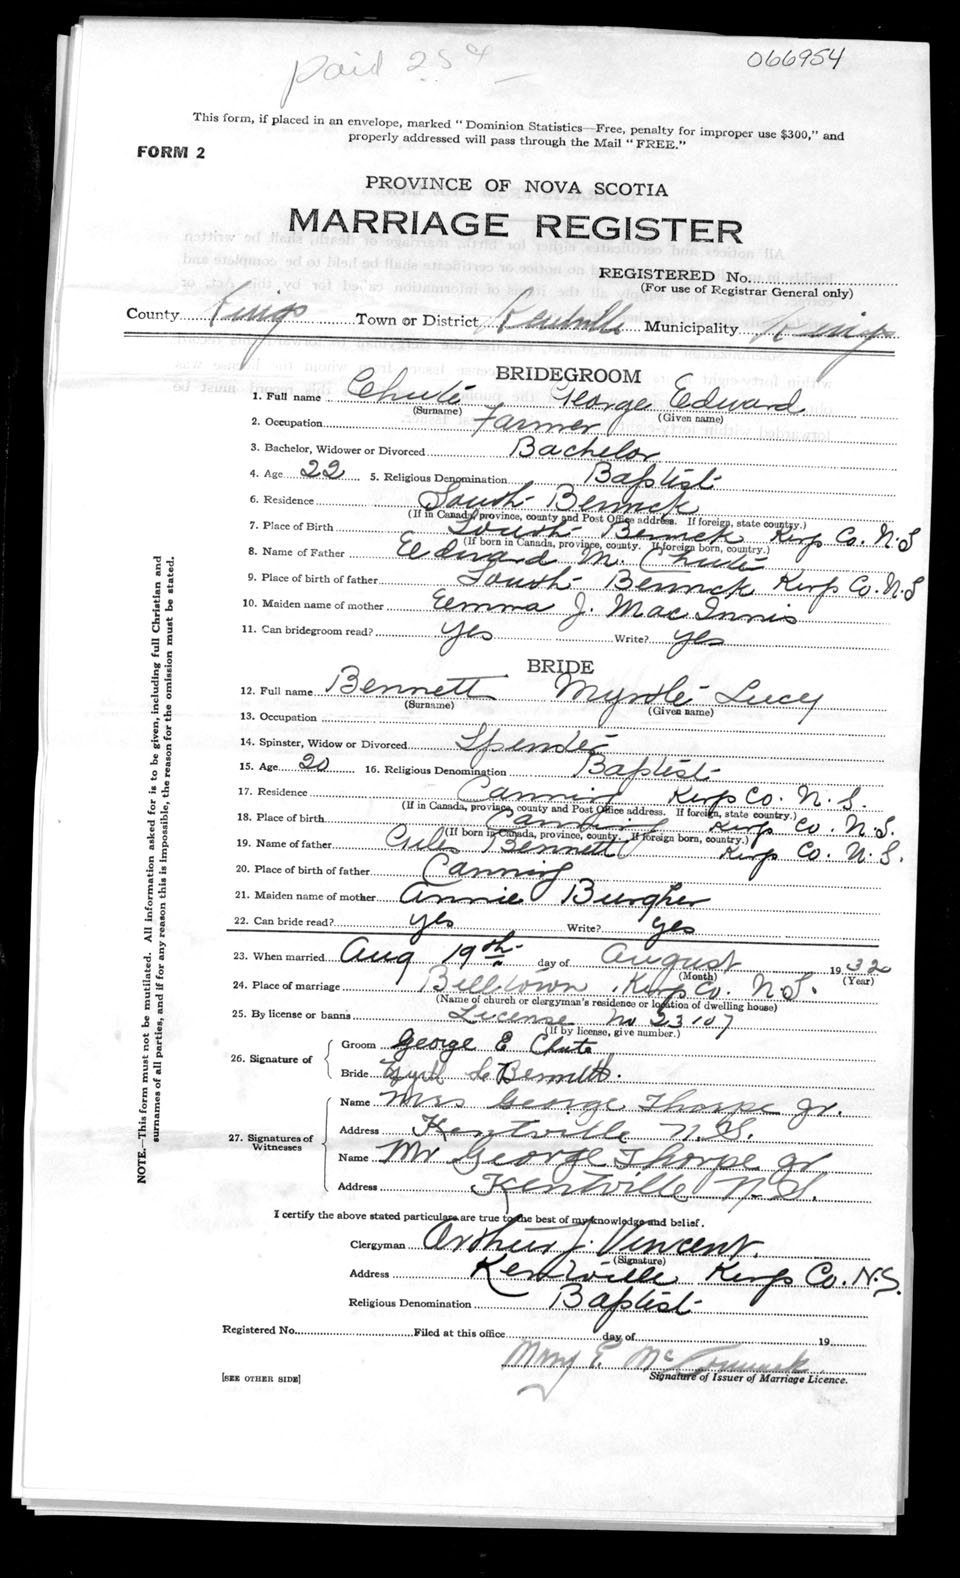 paid 25¢
066954
This form, if placed in an envelope, marked "Dominion Statistics—Free, penalty for improper use $300," and
properly addressed will pass through the Mail "FREE."
FORM 2
PROVINCE OF NOVA SCOTIA
MARRIAGE REGISTER
REGISTERED No.
(For use of Registrar General only)
County Kings Town or District Kentville Municipality Kings
BRIDEGROOM
1. Full name Chute George Edward
(Surname) (Given name)
2. Occupation Farmer
3. Bachelor, Widower or Divorced Bachelor
4. Age 22 5. Religious Denomination Baptist
6. Residence South Berwick
(If in Canada, province, county and Post Office address. If foreign, state country.)
7. Place of Birth South Berwick Kings Co. N.S
(If born in Canada, province, county. If foreign born, country.)
8. Name of Father Edward M. Chute
9. Place of birth of father South Berwick Kings Co. N.S
10. Maiden name of mother Emma J. MacInnis
11. Can bridegroom read? yes Write? yes
BRIDE
12. Full name Bennett Myrtle Lucy
(Surname) (Given name)
13. Occupation
14. Spinster, Widow or Divorced
15. Age 20 16. Religious Denomination Baptist
17. Residence Canning Kings Co. N.S.
(If in Canada, province, county and Post Office address. If foreign, state country.)
18. Place of birth Canning Kings Co. N.S.
(If born in Canada, province, county. If foreign born, country.)
19. Name of father Giles Bennett Kings Co. N.S.
20. Place of birth of father Canning
21. Maiden name of mother Annie Burgher
22. Can bride read? yes Write? yes
23. When married Aug 19th day of August 1932
(Month) (Year)
24. Place of marriage Billtown, Kings Co. N.S.
(Name of church or clergyman's residence or location of dwelling house)
25. By license or banns License No 23107
(If by license, give number.)
26. Signature of
Groom George E Chute
Bride Myrtle L Bennett.
27. Signatures of Witnesses
Name Mrs George Thorpe Jr.
Address Kentville N.S.
Name Mr George Thorpe Jr
Address Kentville N.S.
I certify the above stated particulars are true to the best of my knowledge and belief.
Clergyman Arthur J. Vincent.
(Signature)
Address Kentville Kings Co. N.S.
Religious Denomination Baptist
Registered No. Filed at this office day of 19
Mary E. Mc
[SEE OTHER SIDE] Signature of Issuer of Marriage Licence.
NOTE.—This form must not be mutilated. All information asked for is to be given, including full Christian and
surnames of all parties, and if for any reason this is impossible, the reason for the omission must be stated.